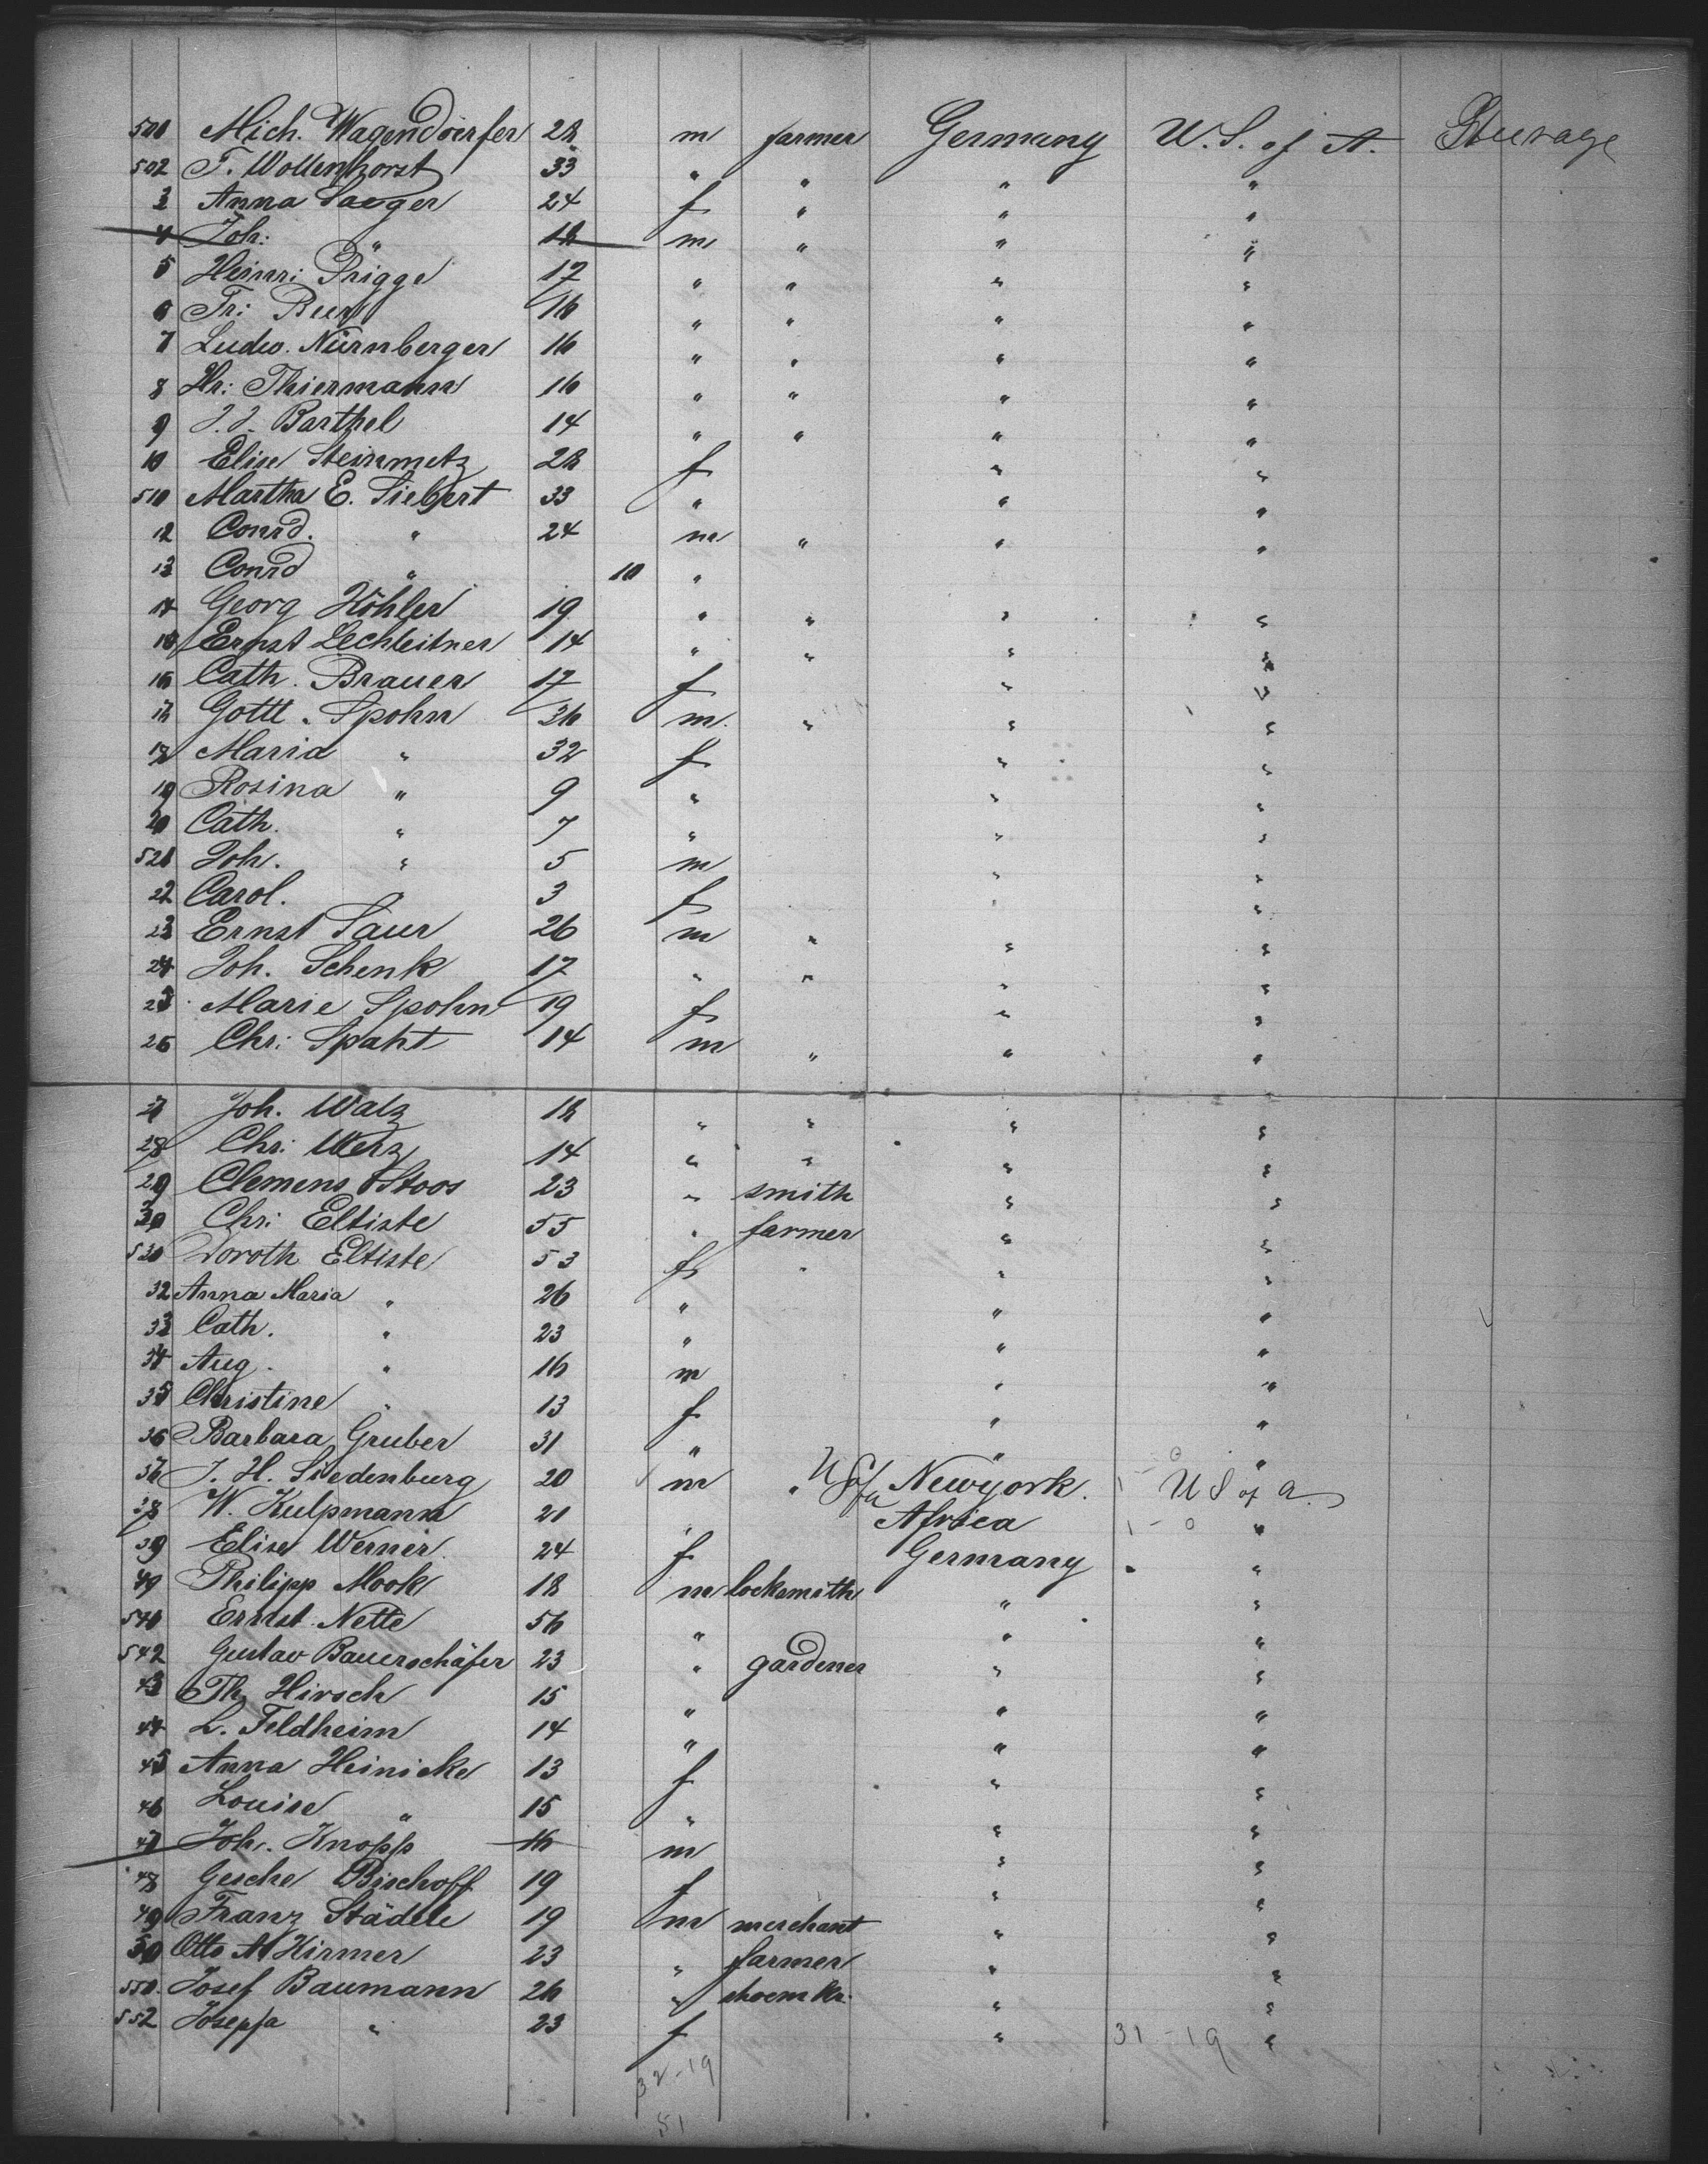 501 Mich. Wagendoerfer 28 m farmer Germany U.S. of A. Steerage
502 F. Wollenhorst 33 " " " "
3 Anna Saeger 24 f " " "
4 Joh: " 18 m " " "
5 Heinr: Prigge 17 " " " "
6 Fr: 16 " " " "
7 Ludw. Nürnberger 16 " " " "
8 Hr: Thiermann 16 " " " "
9 J. J. Barthel 14 " " " "
10 Elise Steinmetz 28 f " "
510 Martha E. Siebert 33 " " "
12 Conrd. " 24 m " " "
13 Conrd " 10 "
14 Georg Köhler 19 " " " "
15 Ernst Lechleitner 14 " " " "
16 Cath. Brauer 17 f " "
17 Gottl. Spohn 36 m. " " "
18 Maria " 32 f " "
19 Rosina " 9 " " "
20 Cath. " 7 " " "
521 Joh. " 5 m " "
22 Carol. 3 f " "
23 Ernst Saur 26 m " " "
24 Joh. Schenk 17 " " " "
25 Marie Spohn 19 f " "
26 Chr: Spaht 14 m " " "
27 Joh. Walz 18 " " " "
28 Chr: Werz 14 " " " "
29 Clemens Stoos 23 " smith " "
30 Chr: Eltiste 55 " farmer " "
530 Doroth Eltiste 53 f " " "
32 Anna Maria " 26 " " "
33 Cath. " 23 " " "
34 Aug. " 16 m " "
35 Christine " 13 f " "
36 Barbara Gruber 31 " " "
37 J. H. Siedenburg 20 m " U S of a Newyork. U S of a.
38 W. Kulpmann 21 " Africa 1 - 0 "
39 Elise Werner 24 f Germany "
40 Philipp Mook 18 m locksmith " "
540 Ernst Nette 56 " " "
542 Gustav Bauerschäfer 23 " gardener " "
43 Th. Hirsch 15 " " "
44 L. Feldheim 14 " " "
45 Anna Heinicke 13 f " "
46 Louise " 15 " " "
47 Joh. Knopp 16 m " "
48 Gesche Bischoff 19 f " "
49 Franz Städele 19 m merchant " "
50 Otto A Kirmer 23 " farmer " "
550. Josef Baumann 26 " shoemkr. " "
552 Josepfa " 23 f " 31 - 19 "
32 - 19
51